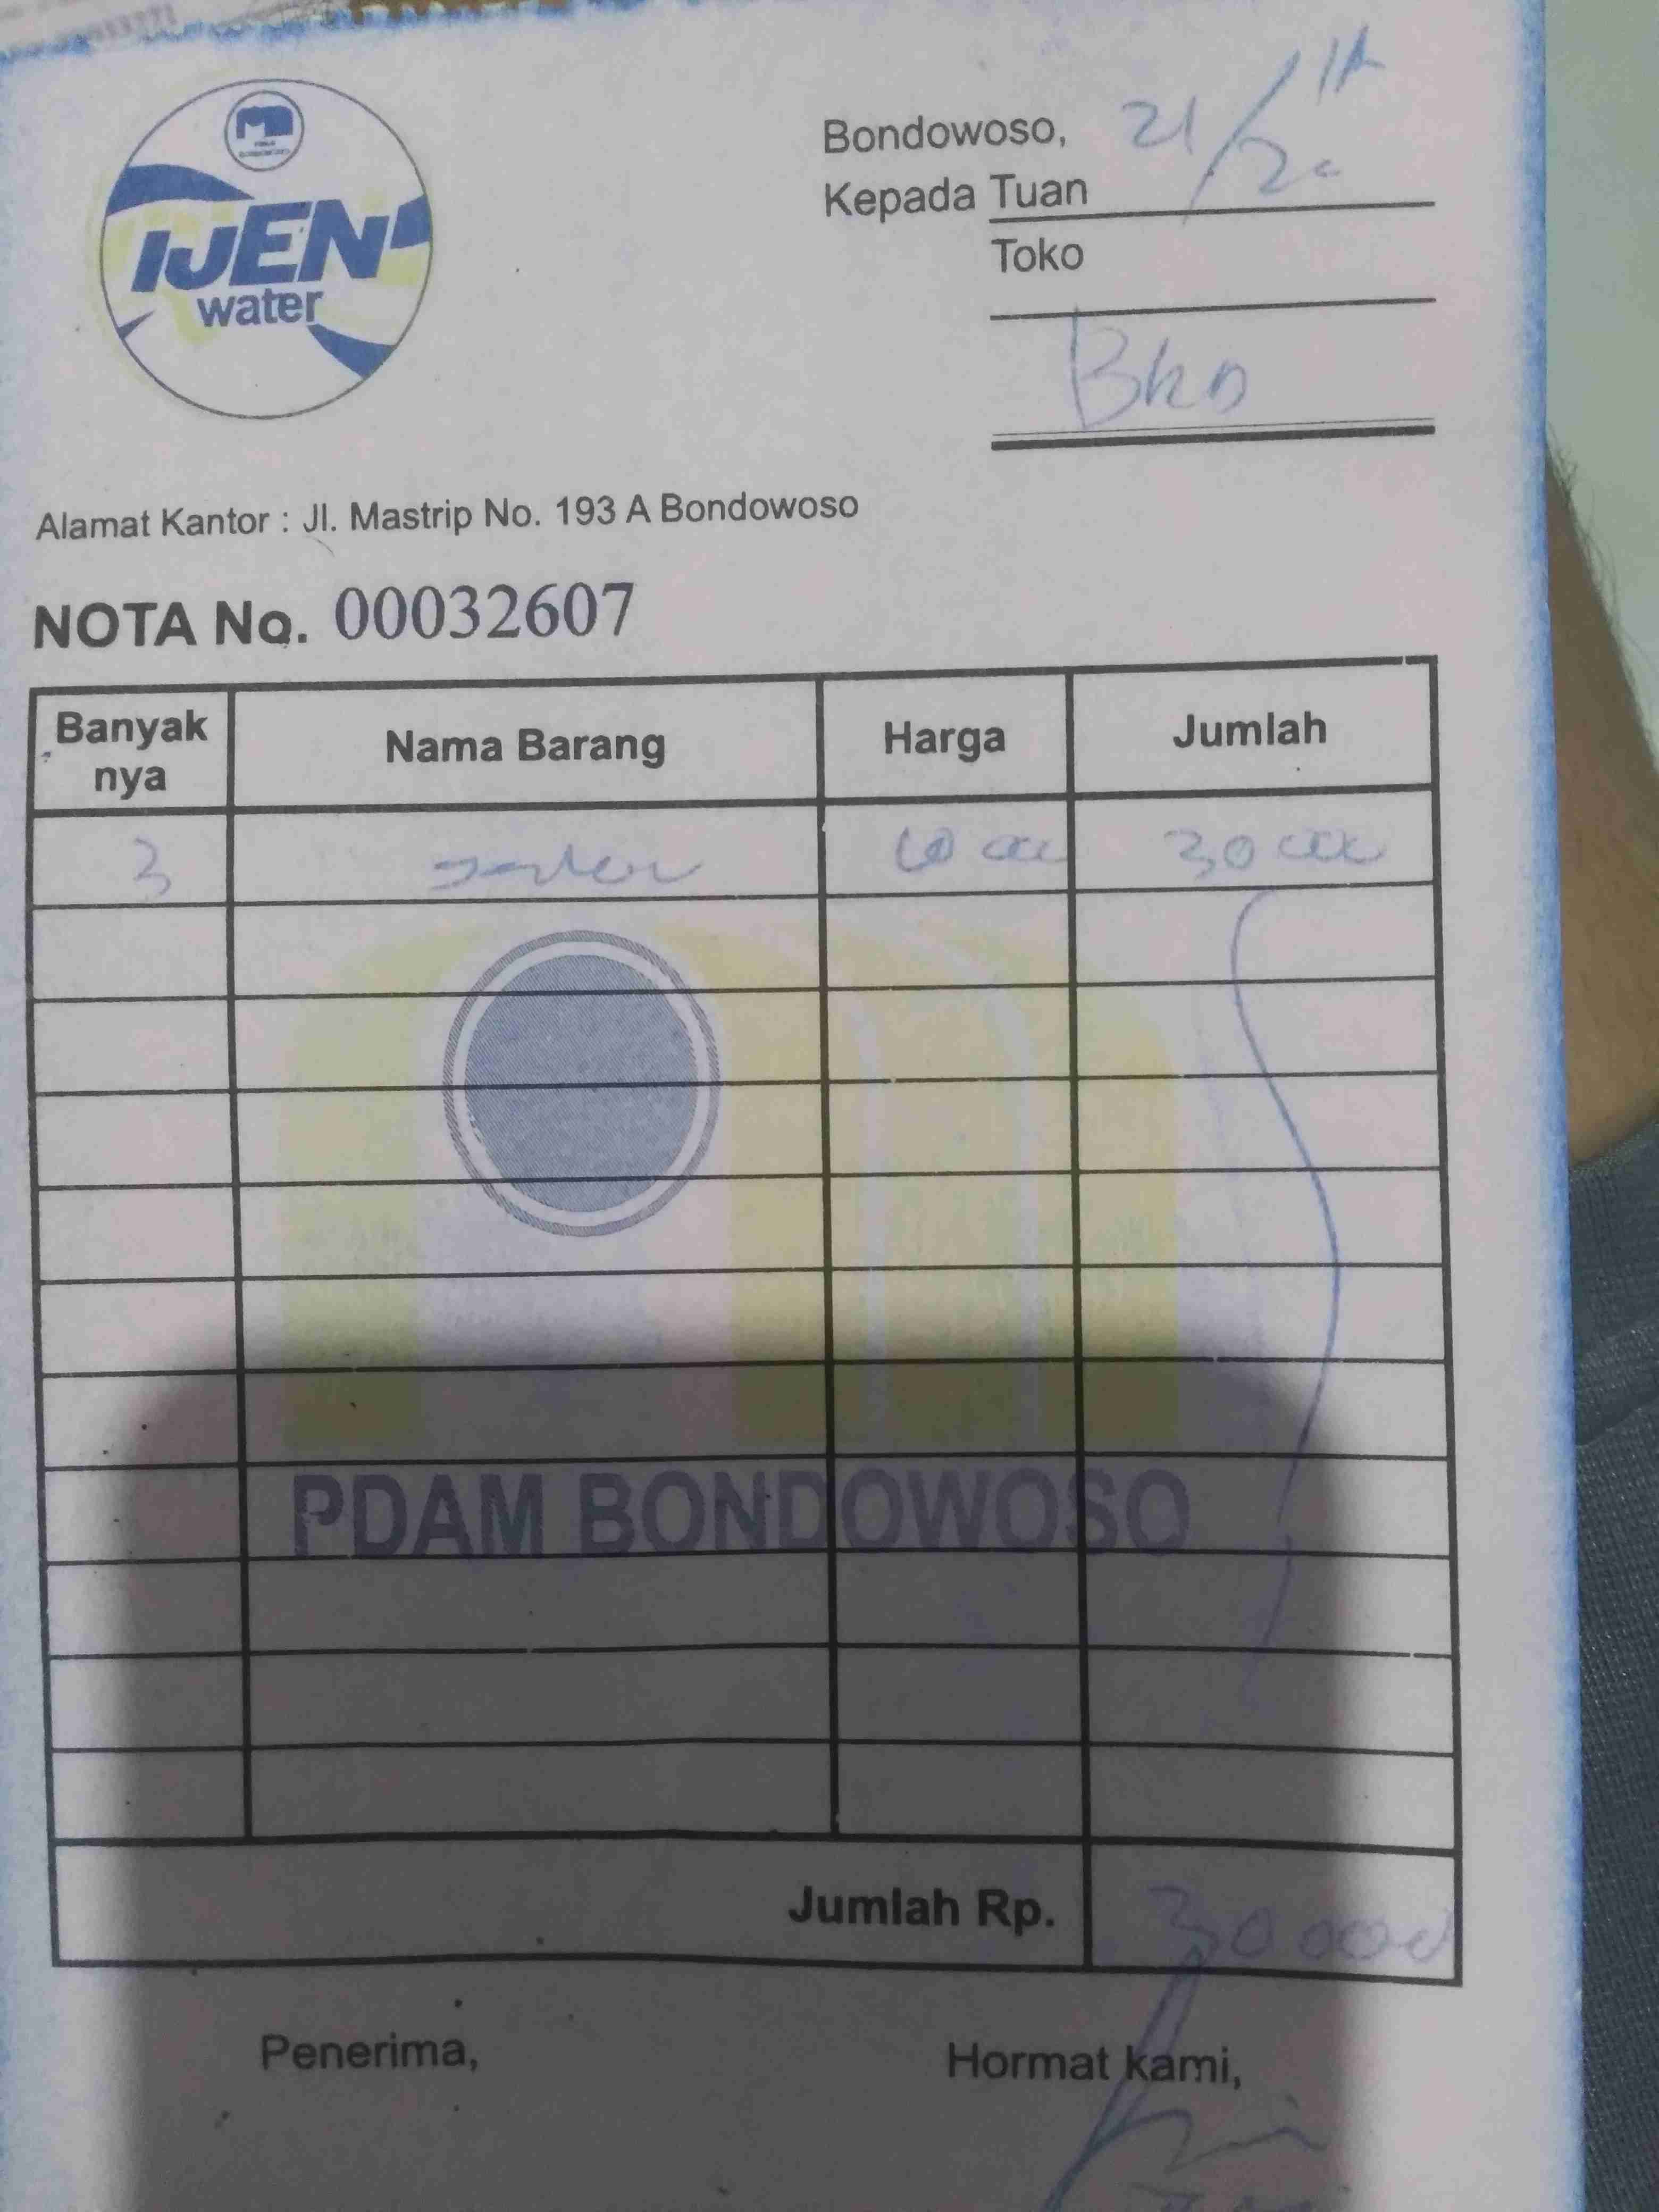 IJEN
water
Bondowoso, 21/11 20
Kepada Tuan
Toko
BKD
Alamat Kantor : Jl. Mastrip No. 193 A Bondowoso
NOTA No. 00032607
Banyak nya Nama Barang Harga Jumlah
3 10 000 30 000
PDAM BONDOWOSO
Jumlah Rp. 30 000
Penerima, Hormat kami,